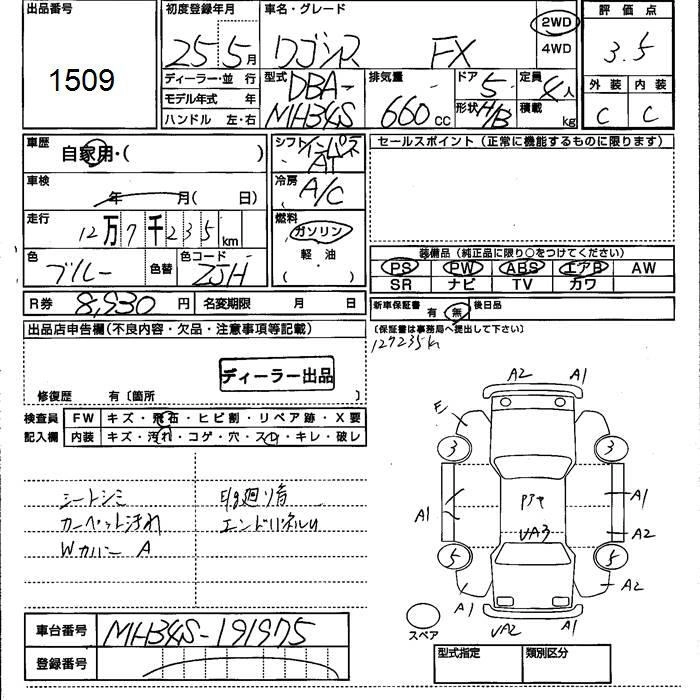 出品番号
1509
初度登録年月
25 5月
車名・グレード
ワゴンR FX
2WD
4WD
評価点
3.5
外装 内装
C C
ディーラー・並行
モデル年式 年
ハンドル 左・右
型式
DBA-
MH34S
排気量
660cc
ドア 5
形状 H/B
定員 4人
積載 kg
車歴
自家用・( )
車検
年 月( 日)
走行
12万7千235km
色
ブルー
色替
色コード
ZJH
シフト
インパネ
AT
冷房
A/C
燃料
ガソリン
軽油
( )
セールスポイント(正常に機能するものに限ります)
装備品(純正品に限り○をつけてください)
PS PW ABS エアB AW
SR ナビ TV カワ
R券 8,930円
名変期限 月 日
新車保証書 有 無
後日品
(保証書は事務局へ提出して下さい)
127235km
出品店申告欄(不良内容・欠品・注意事項等記載)
ディーラー出品
修復歴 有〔箇所 〕
検査員
記入欄
FW キズ・飛石・ヒビ割・リペア跡・X要
内装 キズ・汚れ・コゲ・穴・スレ・キレ・破レ
シートシミ
カーペット汚れ
Wカバー A
E/g廻り音
エンドパネルU
A2 A1
E
3 3
A1
A1
A2
UA3
5 5
A1
A2
UA2
A1
スペア
車台番号 MH34S-191975
登録番号
型式指定 類別区分